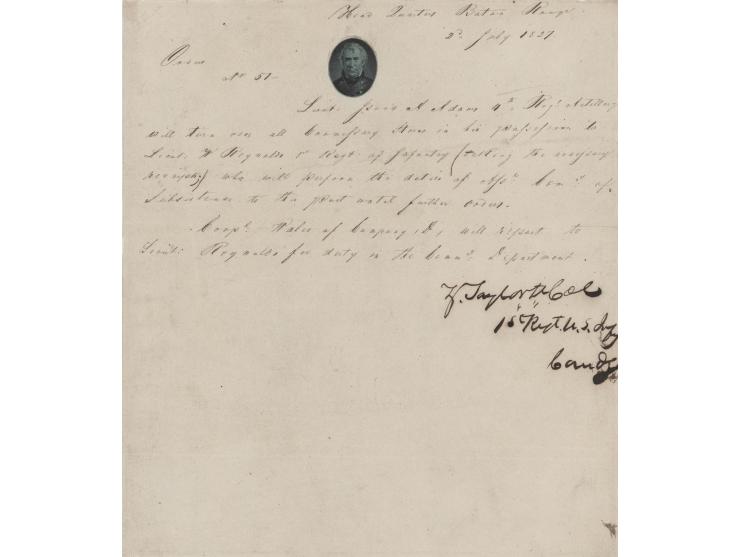 Head Quarters Baton Rouge
2d. July 1827
Order
No 51
Lieut. A Adams 4th. Regt. Artillery
will turn over all Commissary Stores in his possession to
Lieut. W Reynolds 1st Regt of Infantry (taking the necessary
receipts,) who will perform the duties of Asst. Comy. of
Subsistence to the post until further orders.
Corpl. Wales of Company, D, will report to
Lieut. Reynolds for duty in the Comy. Department.
Z. Taylor Lt Col
1st Regt. U.S. Infy
Comdg